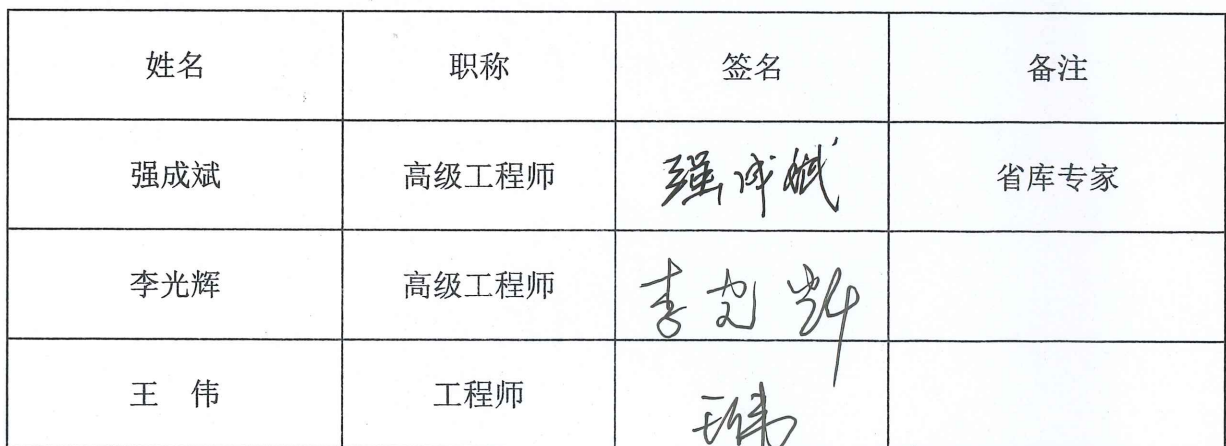 姓名 职称 签名 备注
强成斌 高级工程师 强成斌 省库专家
李光辉 高级工程师 李光辉
王 伟 工程师 王伟